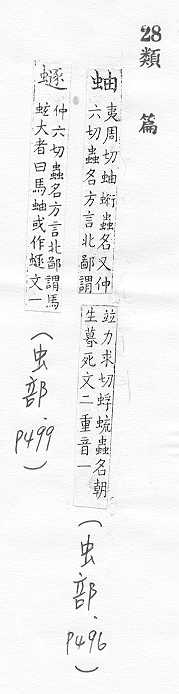 28類篇
蚰夷周切蚰蜒蟲名又仲
六切蟲名方言北鄙謂
竝力求切蜉蝣蟲名朝
生暮死文二重音一
(虫部.P496)
仲六切蟲名方言北鄙謂馬
蚿大者曰馬蚰或作𧐢文一
(虫部.P499)